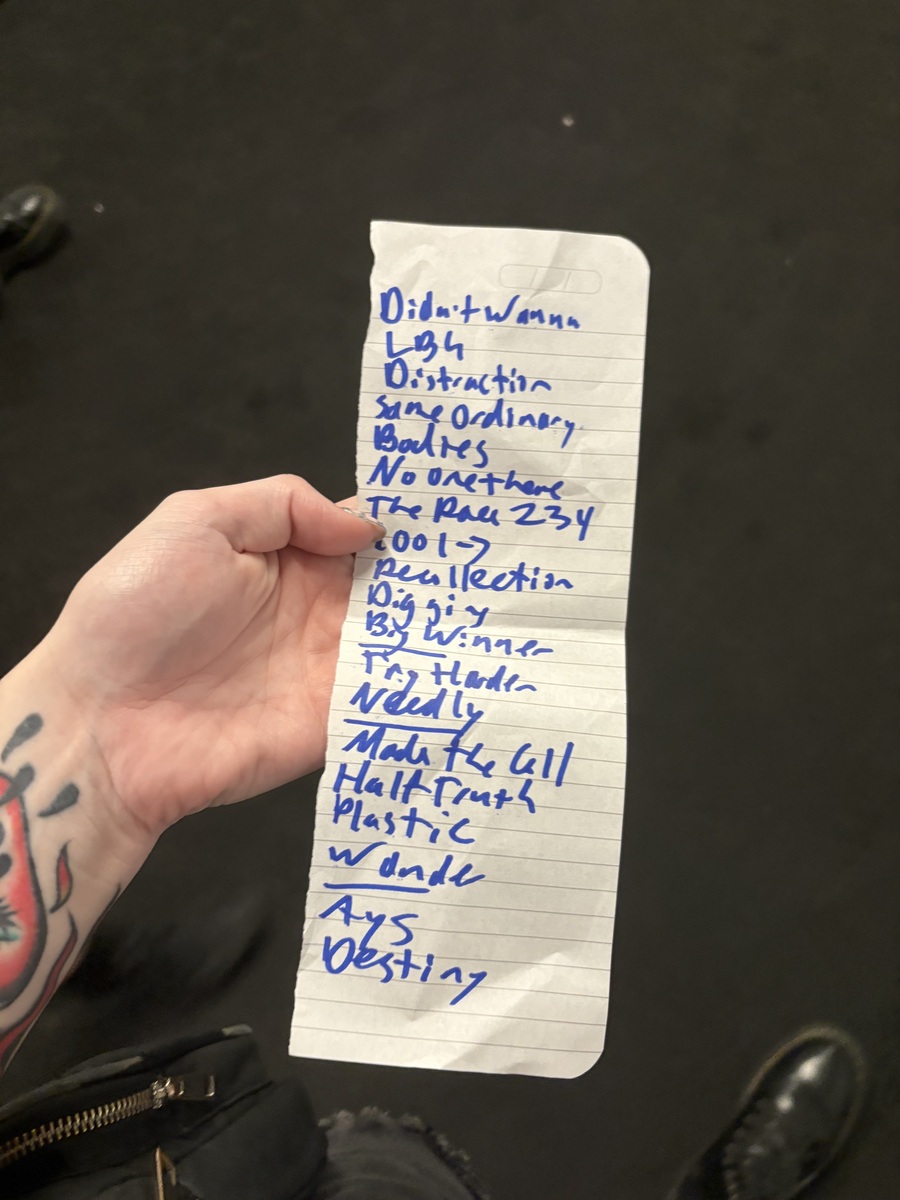 Didn't Wanna
LBG
Distraction
Same Ordinary
Bodies
No one there
The Race 234
Recollection
Big Winner
Try Harder
Needly
Made the Call
Half Truth
Plastic
Wonder
Ays
Destiny